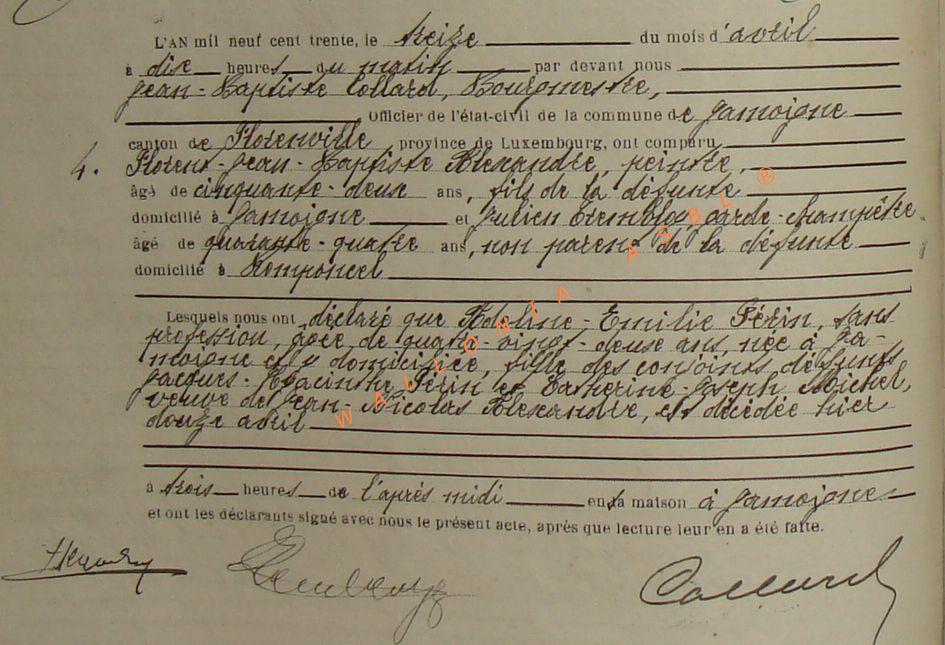 L'AN mil neuf cent trente, le treize du mois d'avril
à dix heures du matin par devant nous
Jean-Baptiste Collard, Bourgmestre,
Officier de l'état-civil de la commune de Jamoigne
canton de Florenville province de Luxembourg, ont comparu
4. Florent-Jean-Baptiste Alexandre, peintre,
âgé de cinquante-deux ans, fils de la défunte
domicilié à Jamoigne et Julien garde-champêtre
âgé de quarante-quatre ans, non parent de la défunte
domicilié à Romponcel
Lesquels nous ont déclaré que Adeline-Emilie Périn, sans
profession, âgée de quatre-vingt-deux ans, née à Ja-
moigne et y domiciliée, fille des conjoints défunts
Jacques-Hyacinthe Périn et Catherine-Joseph Michel,
veuve de Jean-Nicolas Alexandre, est décédée hier
douze avril
à trois heures de l'après midi en sa maison à Jamoigne
et ont les déclarants signé avec nous le présent acte, après que lecture leur en a été faite.
Collard
WALLONIA ASBL ®